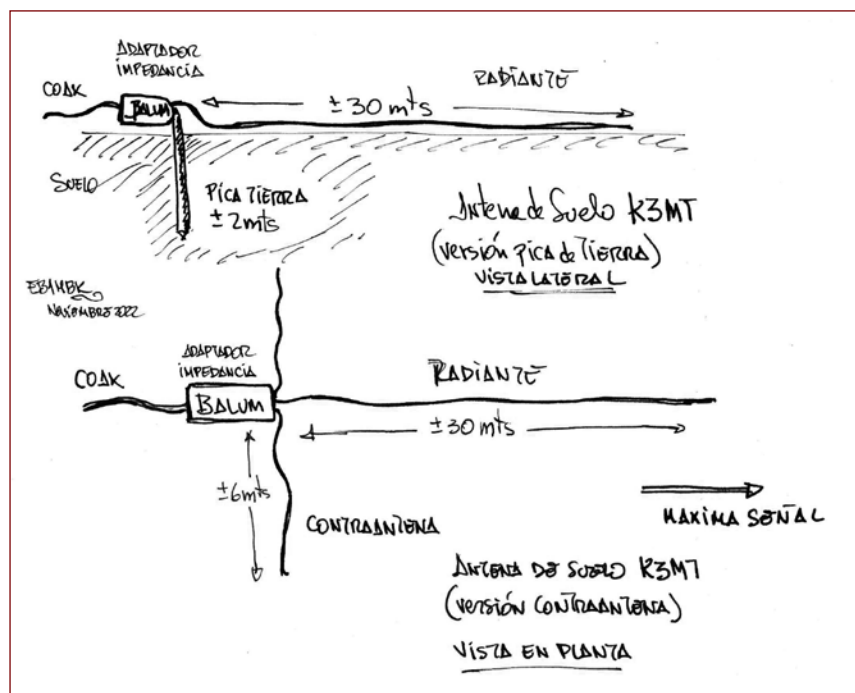 ADAPTADOR
IMPEDANCIA
COAX
BALUM
RADIANTE
±30 mts
SUELO
PICA TIERRA
±2mts
Antena de Suelo K3MT
(versión pica de Tierra)
VISTA LATERAL
EB1HBK
NOVIEMBRE 2022
ADAPTADOR
IMPEDANCIA
COAX
BALUM
RADIANTE
±30 mts
±6mts
CONTRAANTENA
MAXIMA SEÑAL
ANTENA DE SUELO K3MT
(versión CONTRAANTENA)
VISTA EN PLANTA